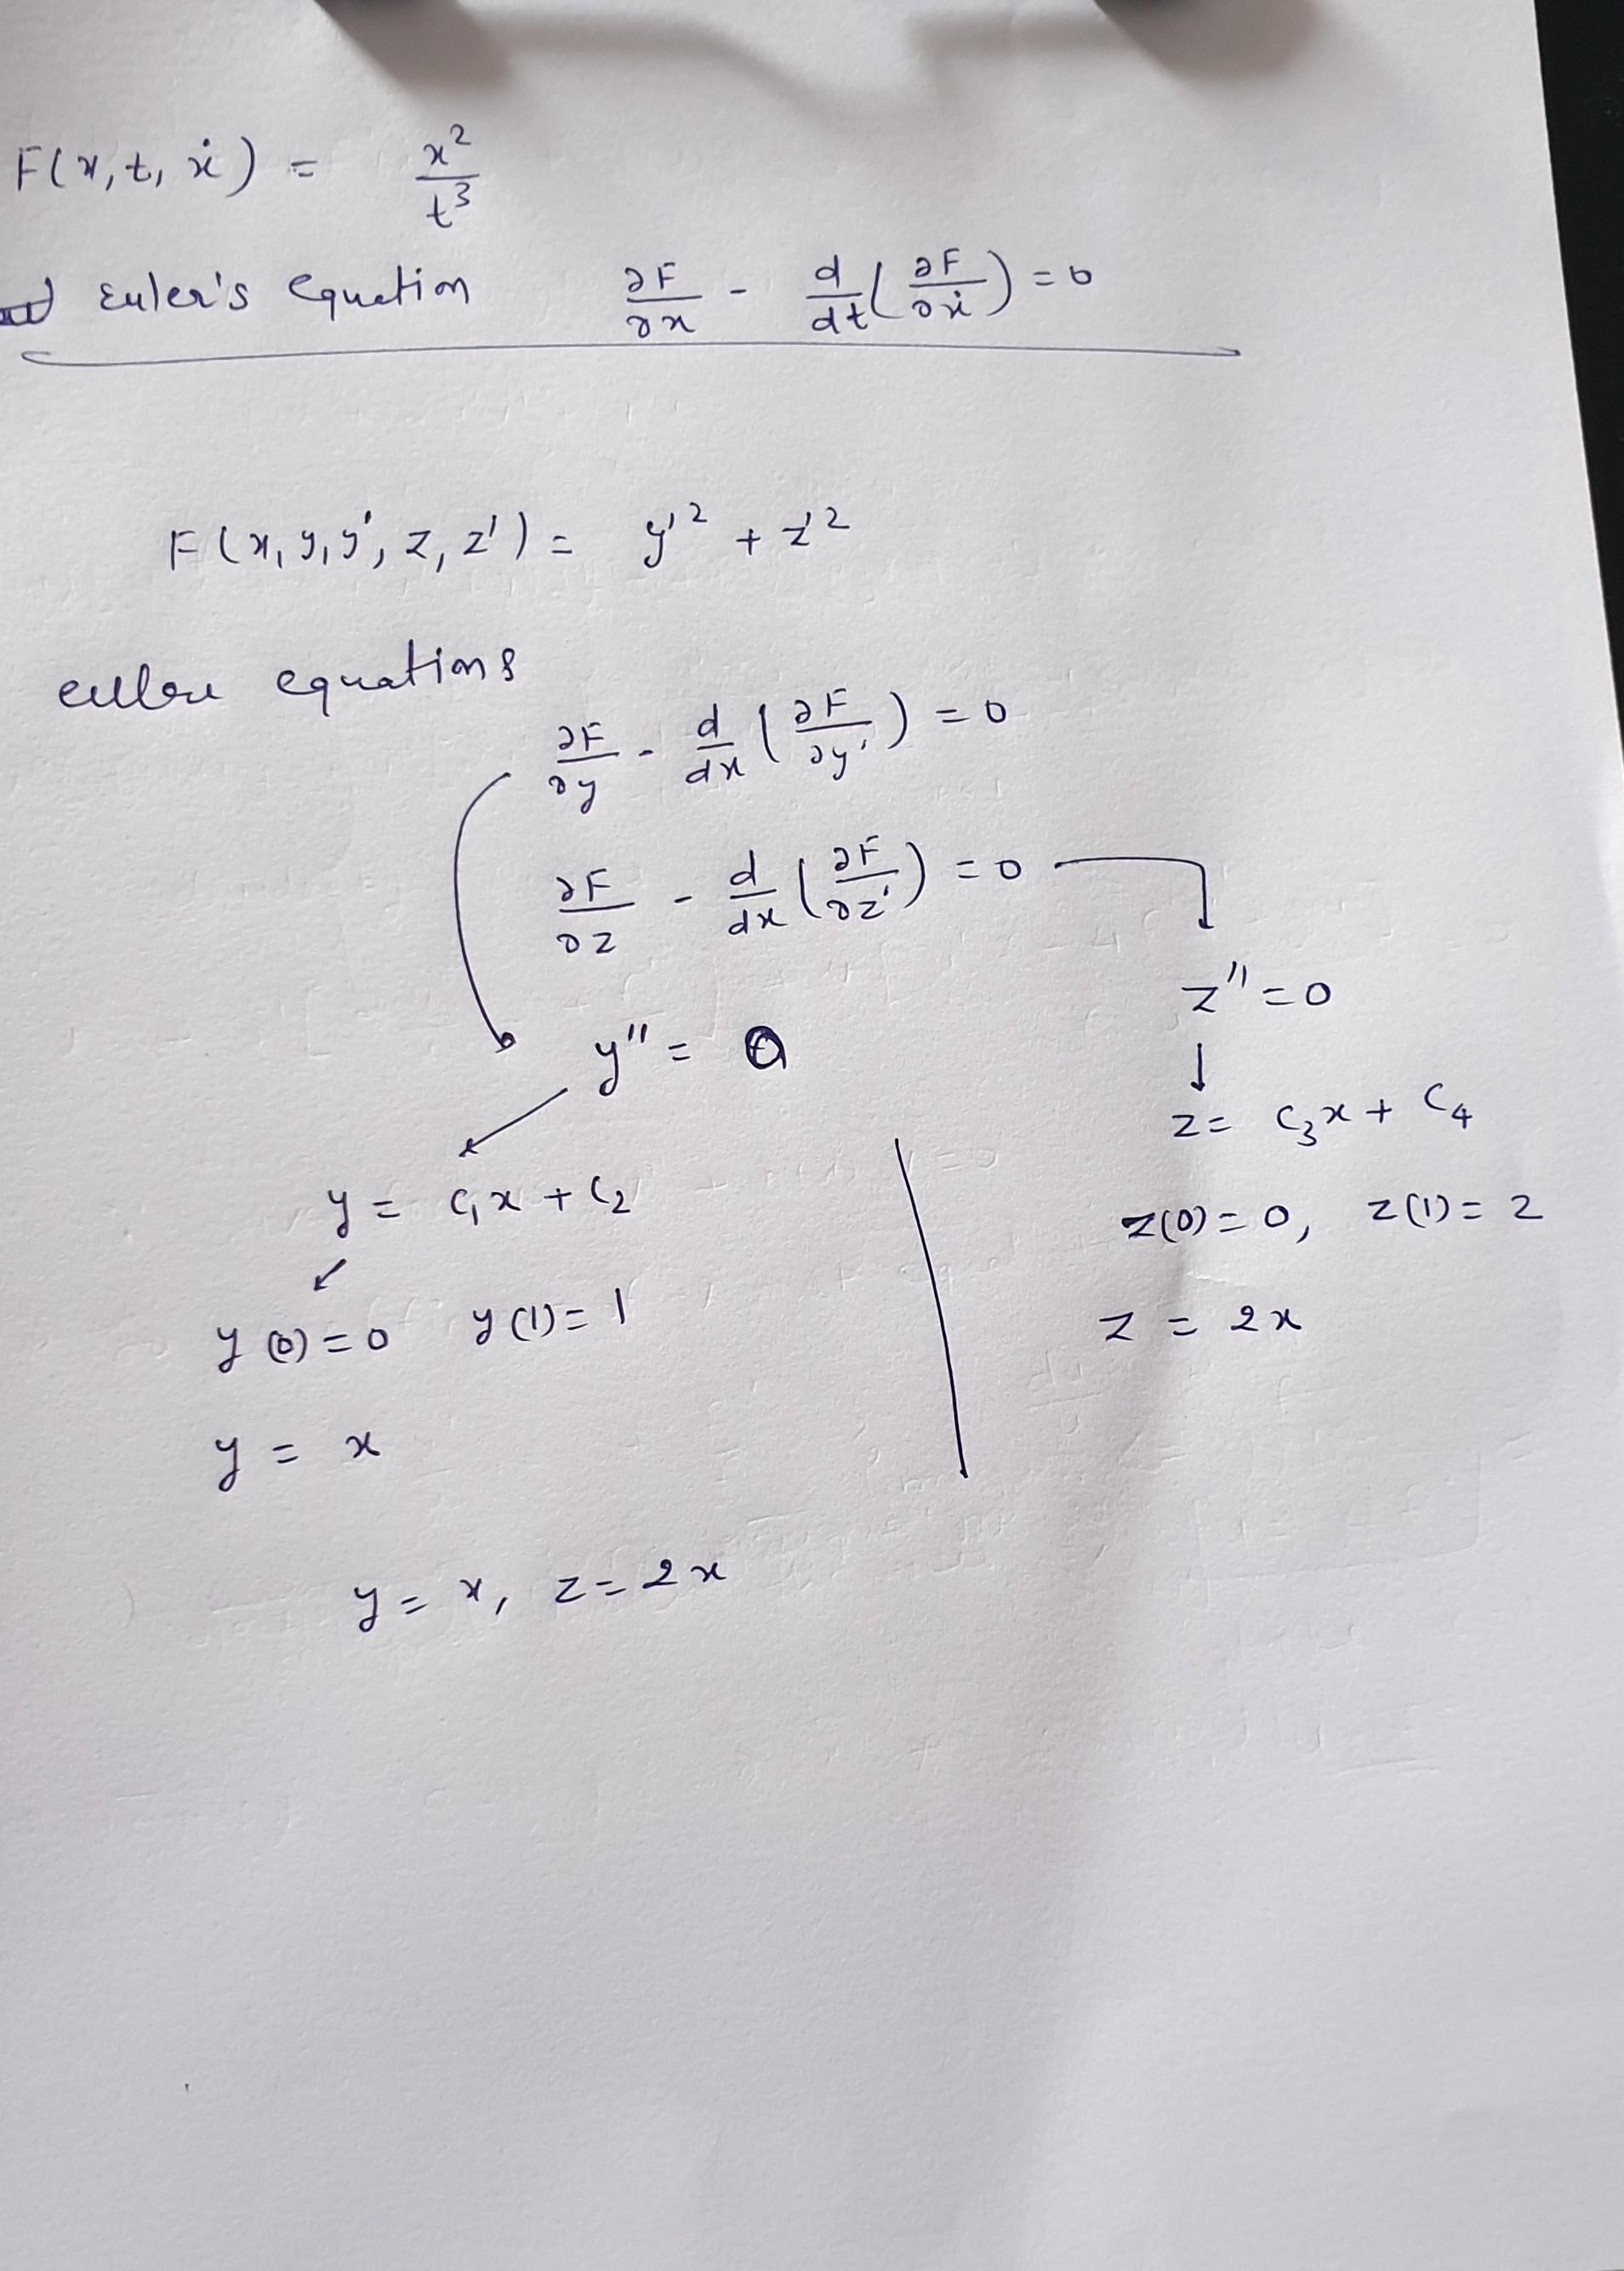 F(x, t, ẋ) = x²/t³
Euler's equation ∂F/∂x - d/dt(∂F/∂ẋ) = 0
F(x, y, y', z, z') = y'² + z'²
equations
∂F/∂y - d/dx(∂F/∂y') = 0
∂F/∂z - d/dx(∂F/∂z') = 0
z'' = 0
y'' = 0
z = c₃x + c₄
y = c₁x + c₂
z(0) = 0, z(1) = 2
y(0) = 0 y(1) = 1
z = 2x
y = x
y = x, z = 2x